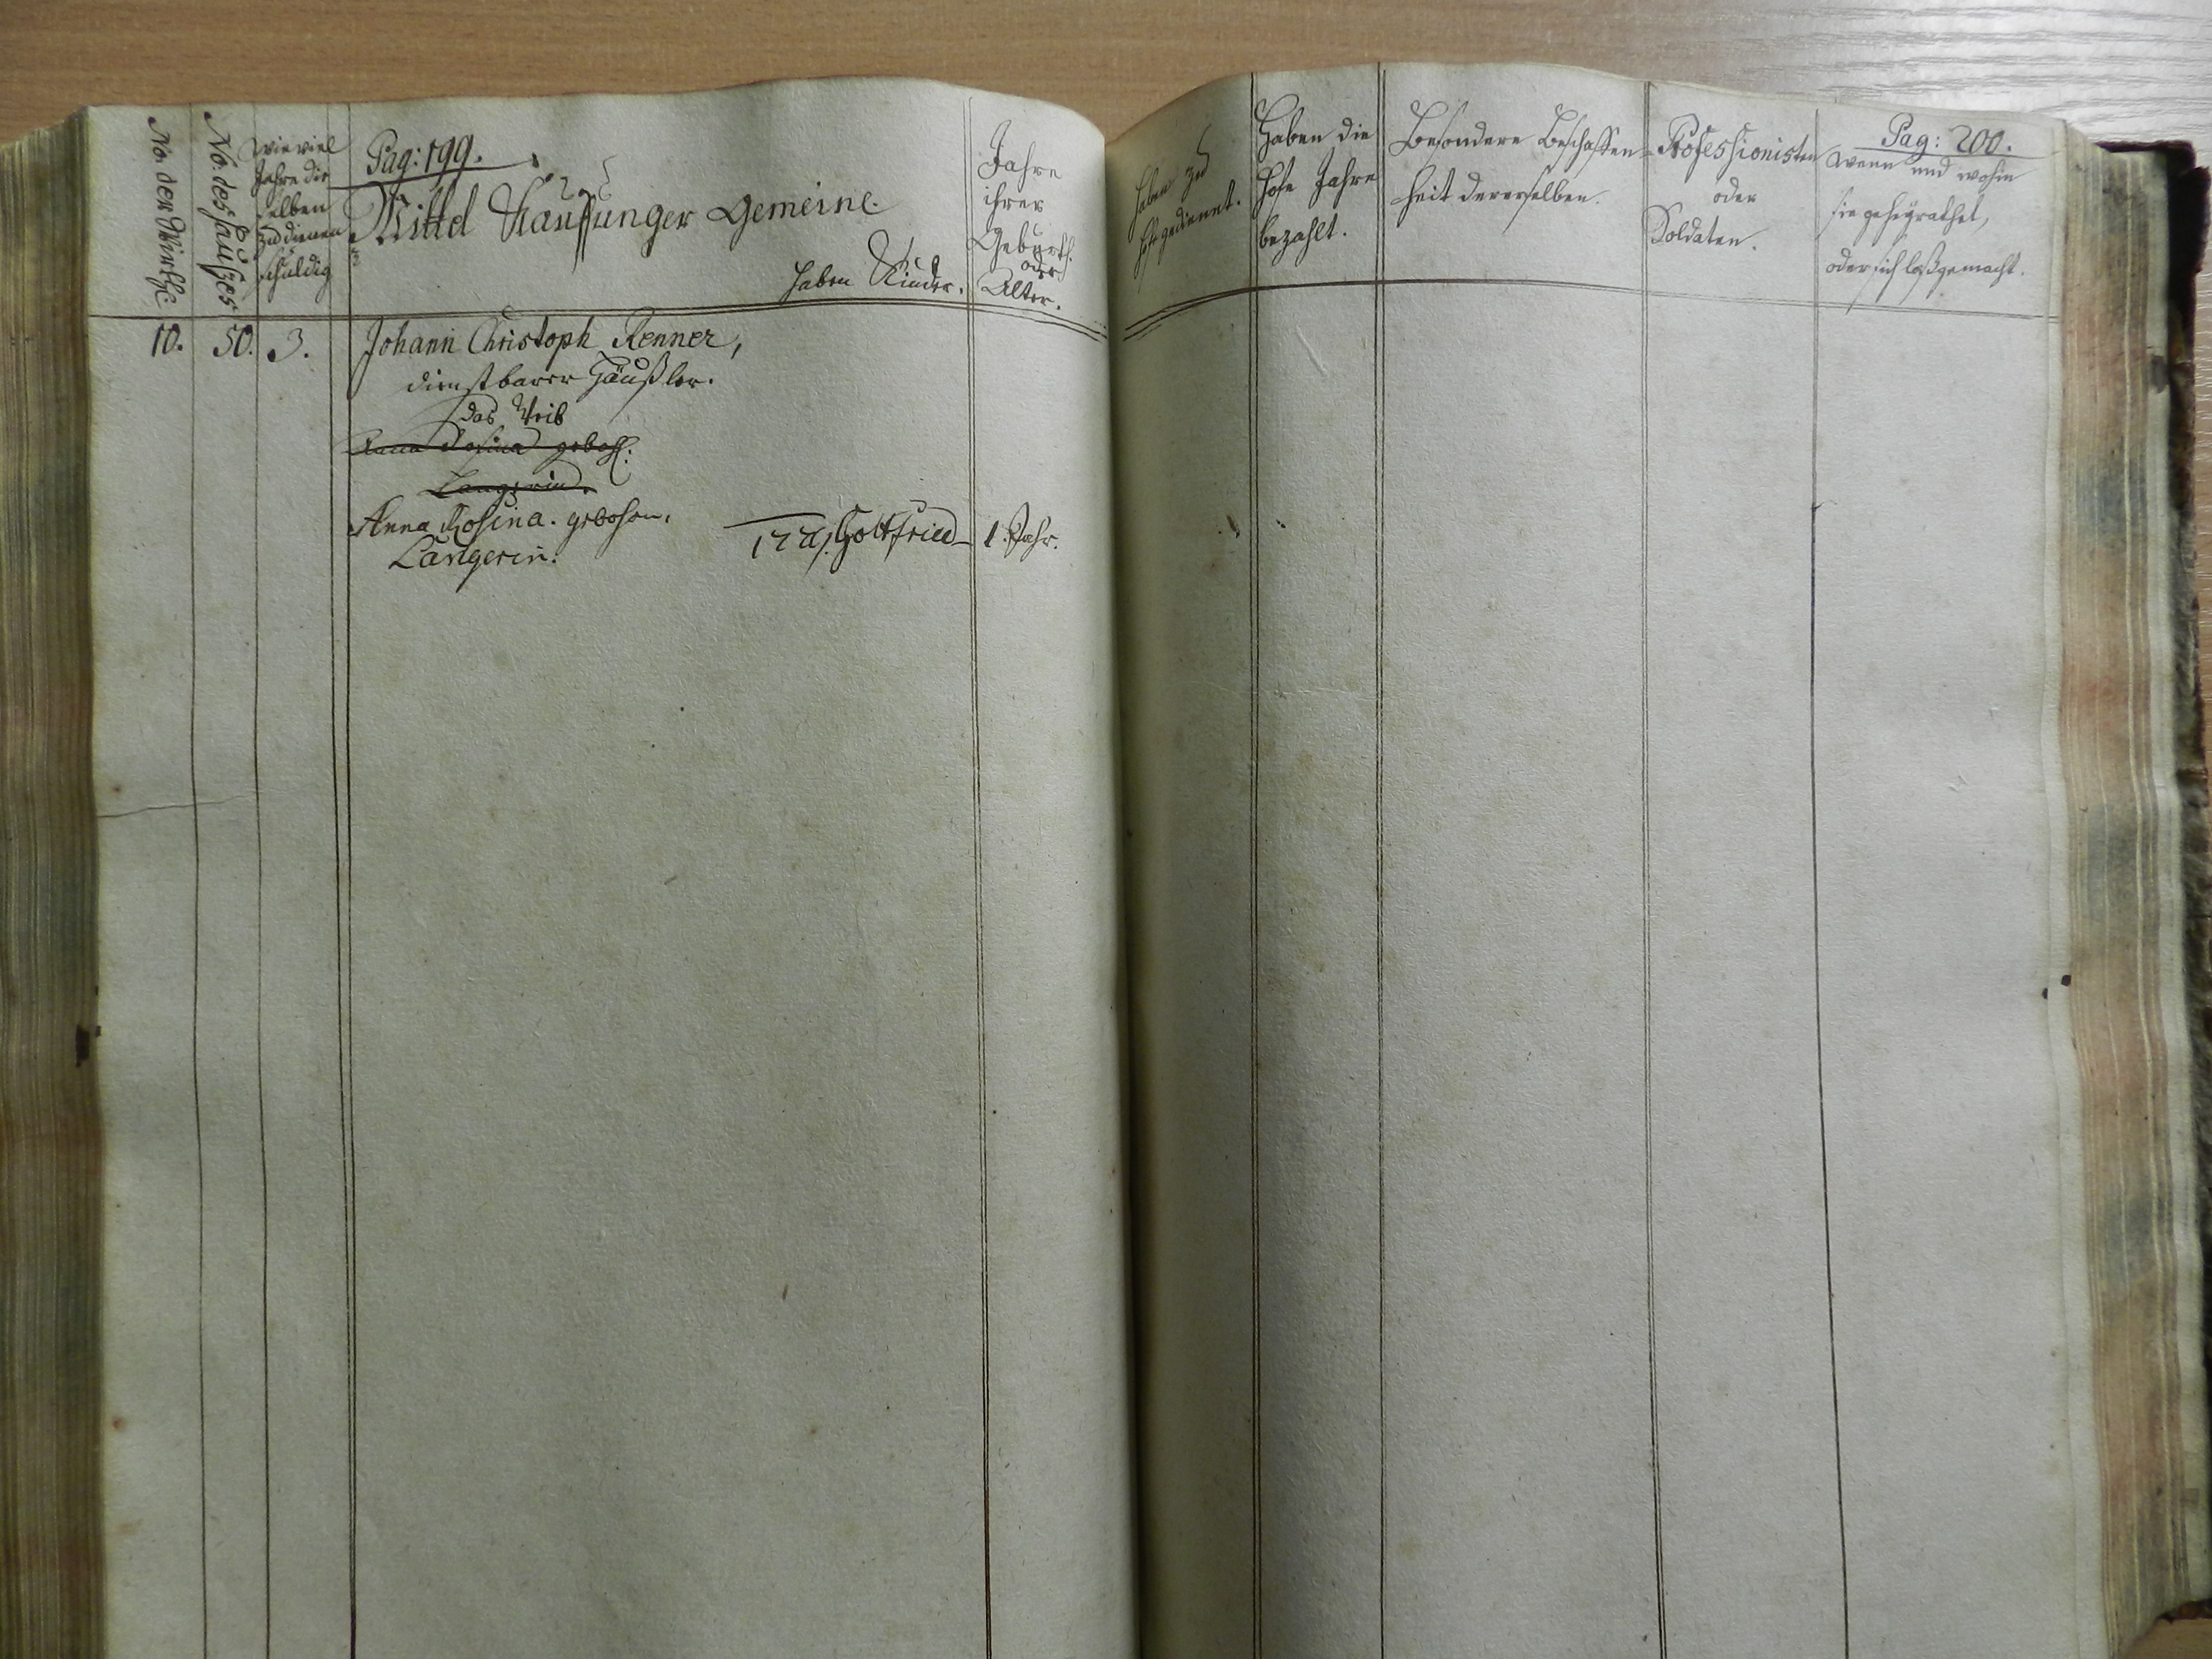 No. der Wirthe
No. des Hauses
Wie viel
Jahre die
selben
zu dienen
schuldig
Pag: 199.
Mittel Kauffunger Gemeine.
haben Kinder.
Jahre
ihrer
Geburth.
oder
Alter.
10. 50. 3. Johann Christoph Renner,
dienstbarer Häußler.
das Weib
Anna Rosina gebohr:
Langerin.
Anna Rosina. gebohrn.
Langerin.
Gottfried 1. Jahr.
haben zu
Hofe gedienet.
Haben die
Hofe Jahre
bezahlt.
Besondere Beschaffen-
heit dererselben.
Professionisten
oder
Soldaten.
Pag: 200.
Wenn und wohin
sie geheyrathet,
oder sich loßgemacht.